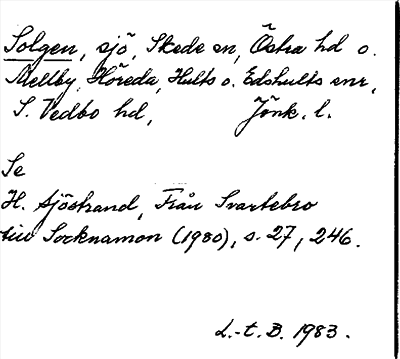 Solgen, sjö, Skede sn, Östra hd o.
Mellby, Höreda, Hults o. Edshults snr,
S. Vedbo hd, Jönk. l.
Se
H. Sjöstrand, Från Svartebro
till Socknamon (1980), s. 27, 246.
L.-t. B. 1983.